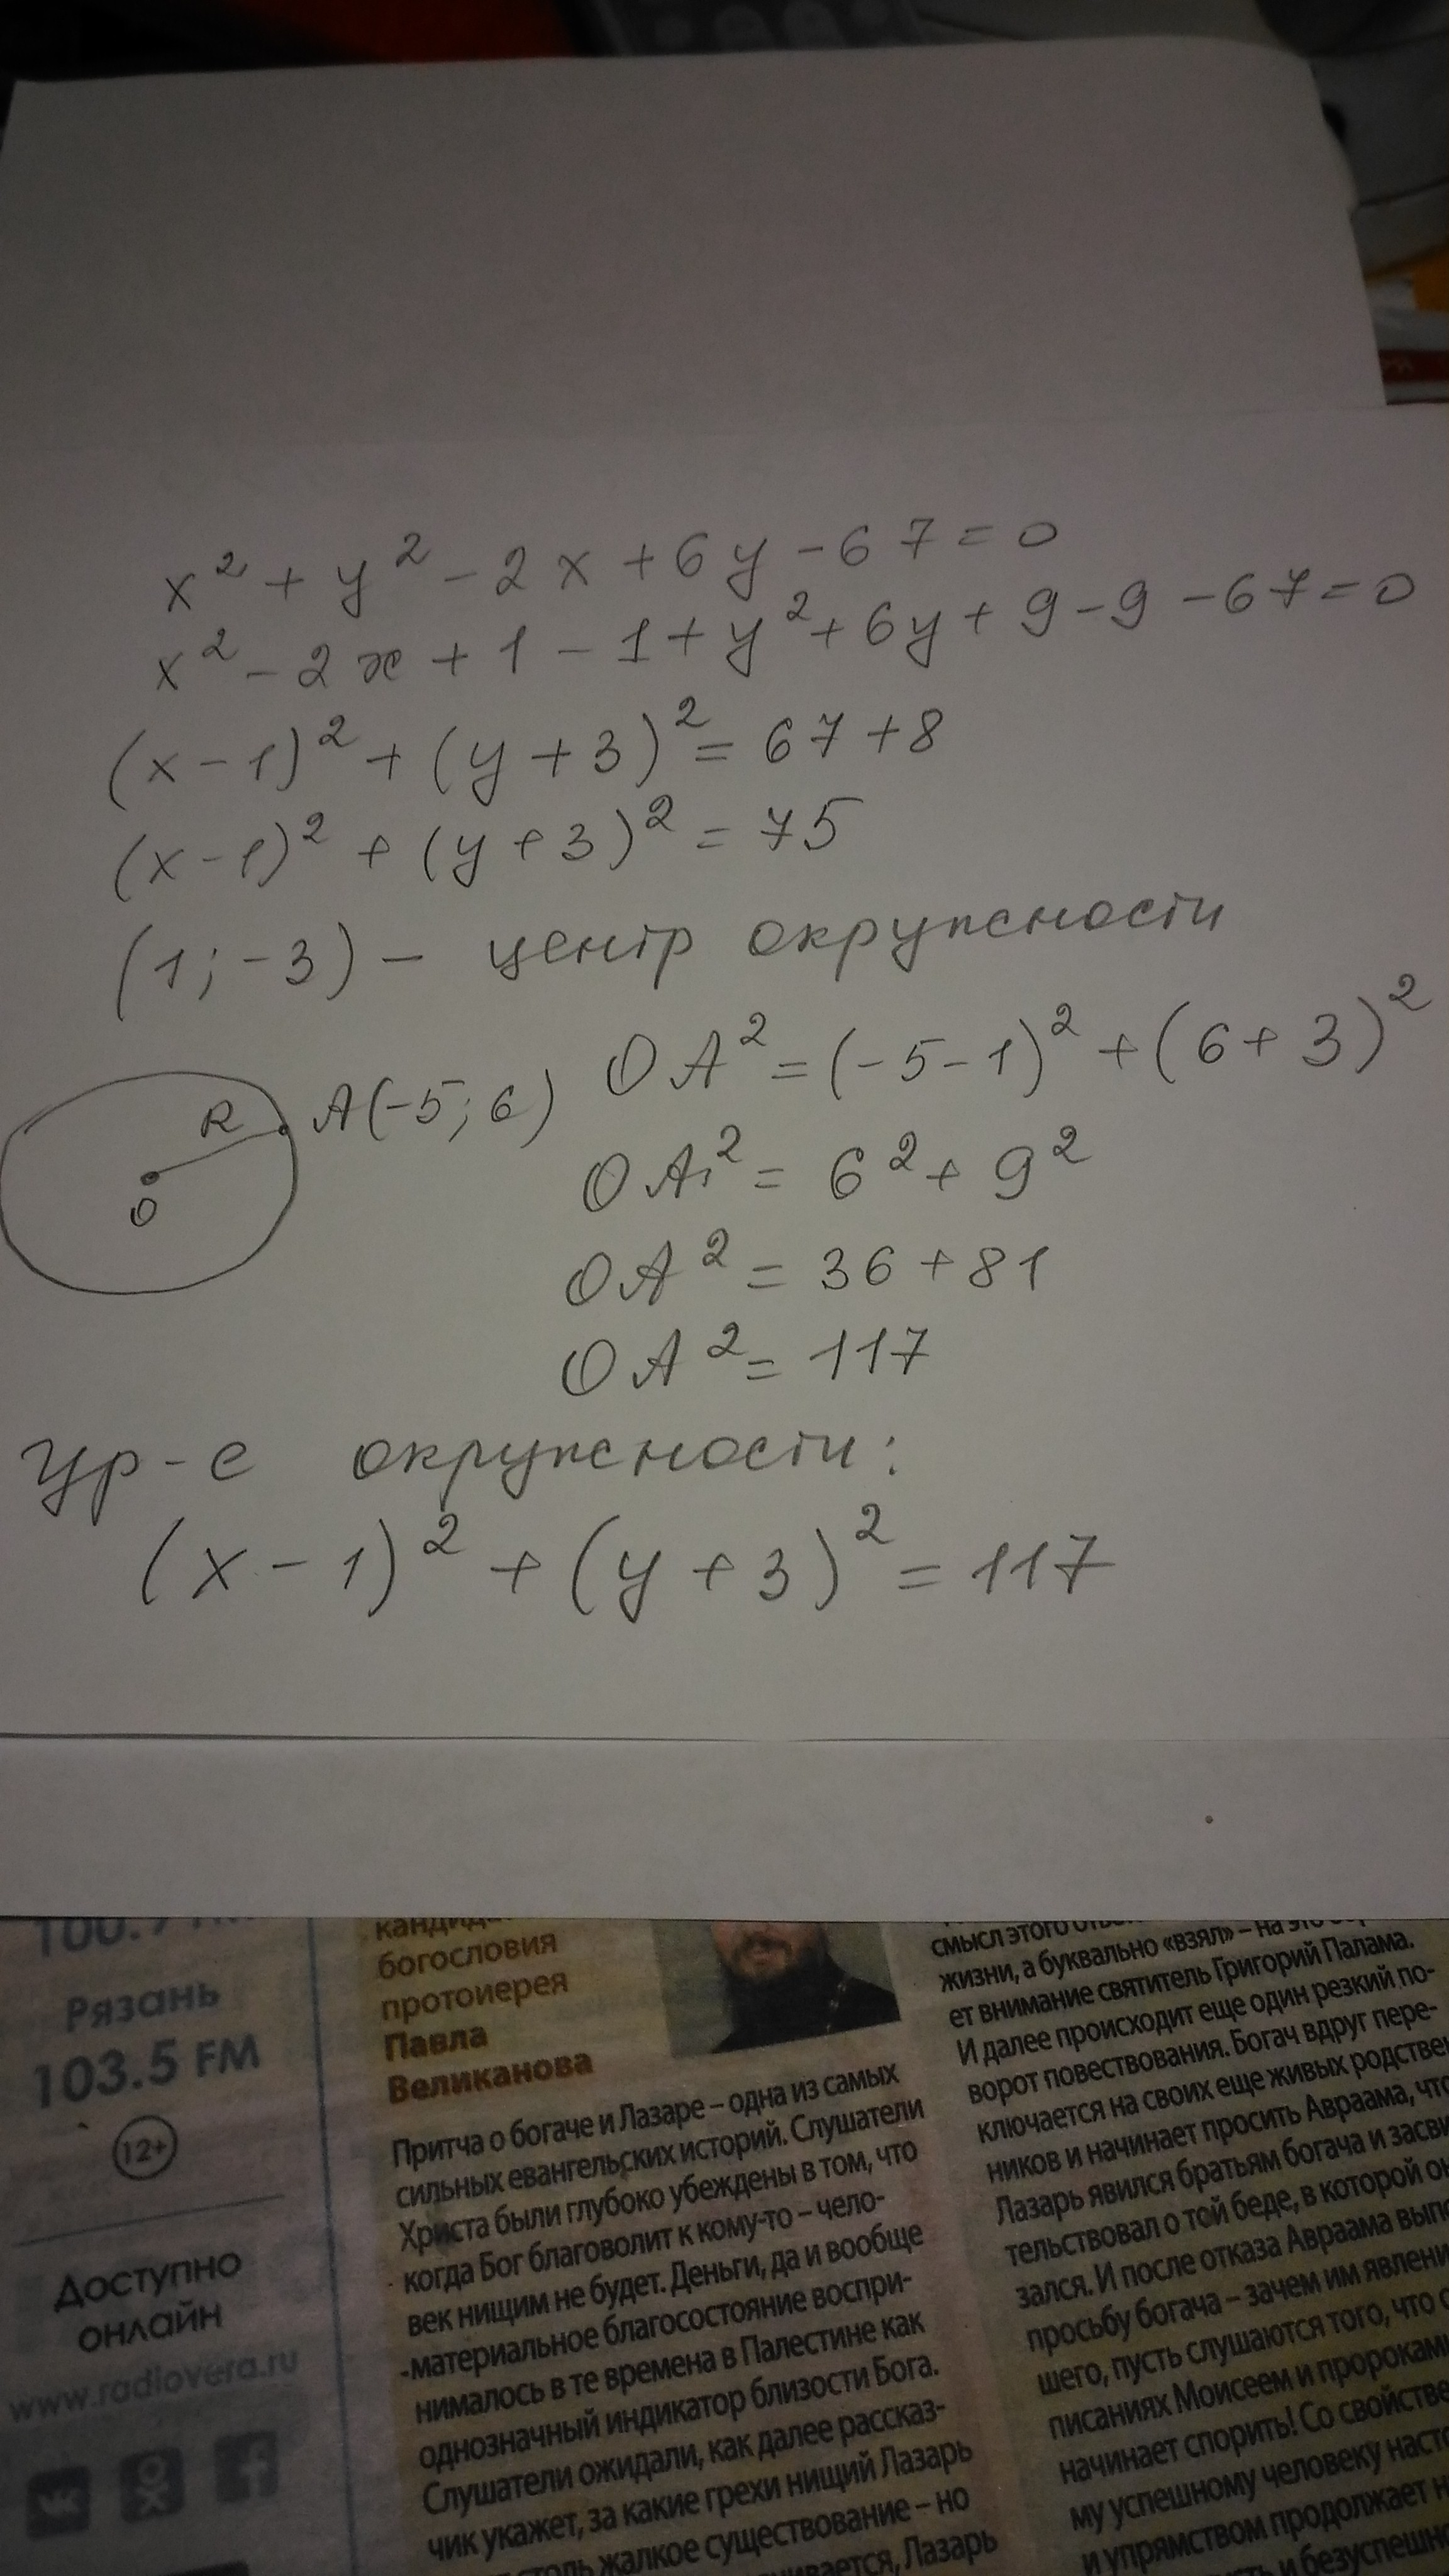 x² + y² - 2x + 6y - 67 = 0
x² - 2x + 1 - 1 + y² + 6y + 9 - 9 - 67 = 0
(x - 1)² + (y + 3)² = 67 + 8
(x - 1)² + (y + 3)² = 75
(1; -3) - центр окружности
R
A(-5; 6)
O
OA² = (-5 - 1)² + (6 + 3)²
OA² = 6² + 9²
OA² = 36 + 81
OA² = 117
Ур-е окружности:
(x - 1)² + (y + 3)² = 117
Рязань
103.5 FM
12+
Доступно
онлайн
www.radiovera.ru
богословия
протоиерея
Павла
Великанова
Притча о богаче и Лазаре – одна из самых
сильных евангельских историй. Слушатели
Христа были глубоко убеждены в том, что
когда Бог благоволит к кому-то – чело-
век нищим не будет. Деньги, да и вообще
материальное благосостояние воспри-
нималось в те времена в Палестине как
однозначный индикатор близости Бога.
Слушатели ожидали, как далее рассказ-
чик укажет, за какие грехи нищий Лазарь
жалкое существование – но
Лазарь
смысл этого
жизни, а буквально «взял» – на
ет внимание святитель Григорий Палама.
И далее происходит еще один резкий по-
ворот повествования. Богач вдруг пере-
ключается на своих еще живых
ников и начинает просить Авраама,
Лазарь явился братьям богача и
тельствовал о той беде, в которой
зался. И после отказа Авраама
просьбу богача – зачем им
шего, пусть слушаются того, что
писаниях Моисеем и
начинает спорить! Со
му успешному человеку
и упрямством продолжает
и